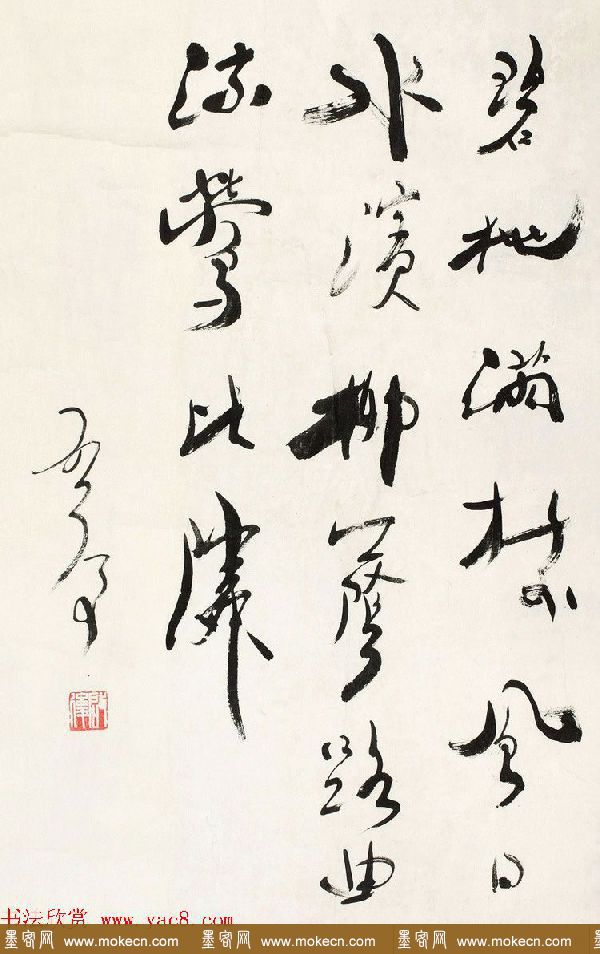 碧桃滿樹風日
水濱柳蔭路曲
流鶯比隣
书法欣赏 www.yac8.com
墨客网 www.mokecn.com 墨客网 www.mokecn.com 墨客网 www.mokecn.com